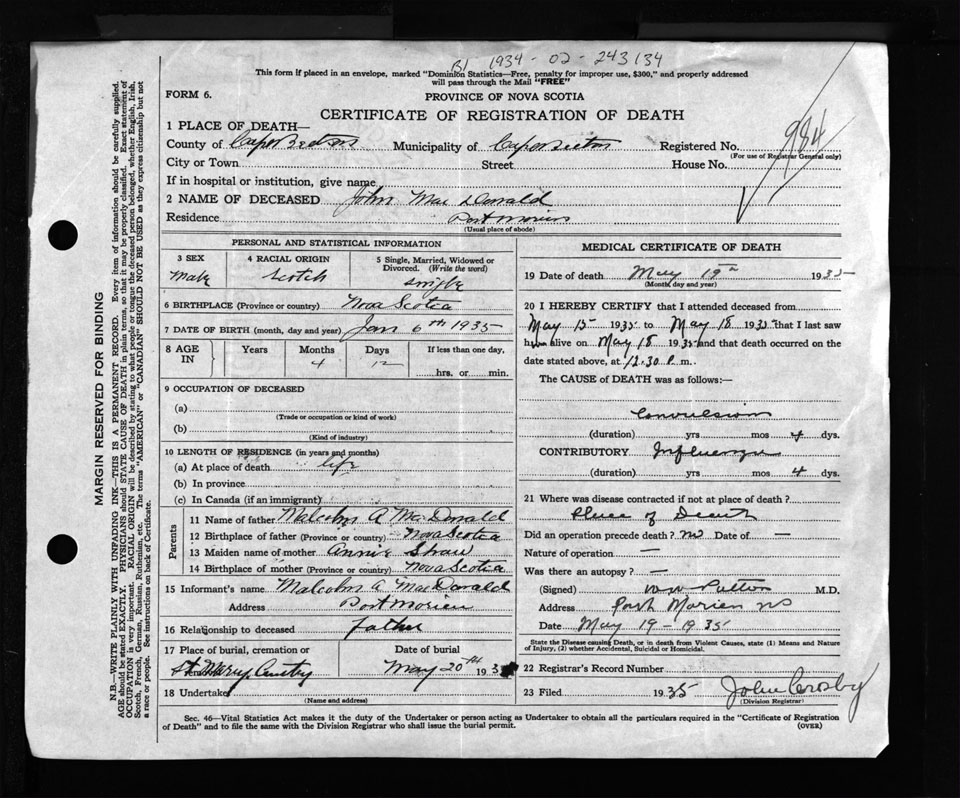 B1 1934-02-243134
This form if placed in an envelope, marked "Dominion Statistics—Free, penalty for improper use, $300," and properly addressed
will pass through the Mail "FREE"
FORM 6.
PROVINCE OF NOVA SCOTIA
CERTIFICATE OF REGISTRATION OF DEATH
984
1 PLACE OF DEATH—
County of Cape Breton Municipality of Cape Breton Registered No.
(For use of Registrar General only)
City or Town Street House No.
If in hospital or institution, give name
2 NAME OF DECEASED John MacDonald
Residence Port Morien
(Usual place of abode)
PERSONAL AND STATISTICAL INFORMATION
3 SEX
Male
4 RACIAL ORIGIN
Scotch
5 Single, Married, Widowed or
Divorced. (Write the word)
single
6 BIRTHPLACE (Province or country) Nova Scotia
7 DATE OF BIRTH (month, day and year) Jan 6th 1935
8 AGE IN
Years
Months
4
Days
12
If less than one day,
hrs. or min.
9 OCCUPATION OF DECEASED
(a)
(Trade or occupation or kind of work)
(b)
(Kind of industry)
10 LENGTH OF RESIDENCE (in years and months)
(a) At place of death life
(b) In province
(c) In Canada (if an immigrant)
Parents
11 Name of father Malcolm A MacDonald
12 Birthplace of father (Province or country) Nova Scotia
13 Maiden name of mother Annie Shaw
14 Birthplace of mother (Province or country) Nova Scotia
15 Informant's name Malcolm A MacDonald
Address Port Morien
16 Relationship to deceased father
17 Place of burial, cremation or
St Marys Cemetry
Date of burial
May 20th 193
18 Undertaker
(Name and address)
MEDICAL CERTIFICATE OF DEATH
19 Date of death May 19th 1935
(Month, day and year)
20 I HEREBY CERTIFY that I attended deceased from
May 15 1935 to May 18 1935 that I last saw
him alive on May 18 1935 and that death occurred on the
date stated above, at 12.30 P. m.
The CAUSE OF DEATH was as follows:—
Convulsions
(duration) yrs mos 4 dys.
CONTRIBUTORY Influenza
(duration) yrs mos 4 dys.
21 Where was disease contracted if not at place of death?
Place of Death
Did an operation precede death? no Date of —
Nature of operation —
Was there an autopsy? —
(Signed) Patton M.D.
Address Port Morien NS
Date May 19 - 1935
State the Disease causing Death, or in death from Violent Causes, state (1) Means and Nature
of Injury, (2) whether Accidental, Suicidal or Homicidal.
22 Registrar's Record Number
23 Filed 1935 John Crosby
(Division Registrar)
Sec. 46—Vital Statistics Act makes it the duty of the Undertaker or person acting as Undertaker to obtain all the particulars required in the "Certificate of Registration
of Death" and to file the same with the Division Registrar who shall issue the burial permit.
(OVER)
MARGIN RESERVED FOR BINDING
N.B.—WRITE PLAINLY WITH UNFADING INK—THIS IS A PERMANENT RECORD. Every item of information should be carefully supplied.
AGE should be stated EXACTLY. PHYSICIANS should STATE CAUSE OF DEATH in plain terms, so that it may be properly classified. Exact statement of
OCCUPATION is very important. RACIAL ORIGIN will be described by stating to what people or tongue the deceased person belonged, whether English, Irish,
Scotch, French, German, Russian, Ruthenian, etc. The terms "AMERICAN" or "CANADIAN" SHOULD NOT BE USED as they express citizenship but not
a race or people. See instructions on back of Certificate.